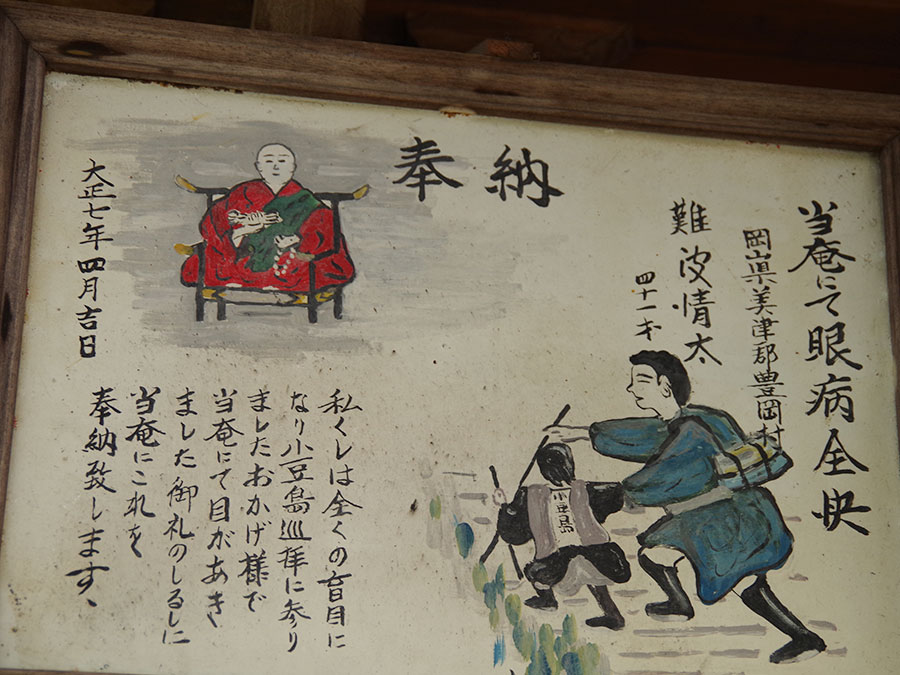 奉納
当庵にて眼病全快
岡山県美津郡豊岡村
難波情太
四十一才
小豆島
私くしは全くの盲目に
なり小豆島巡拝に参り
ましたおかげ様で
当庵にて目があき
ました御礼のしるしに
当庵にこれを
奉納致します、
大正七年四月吉日